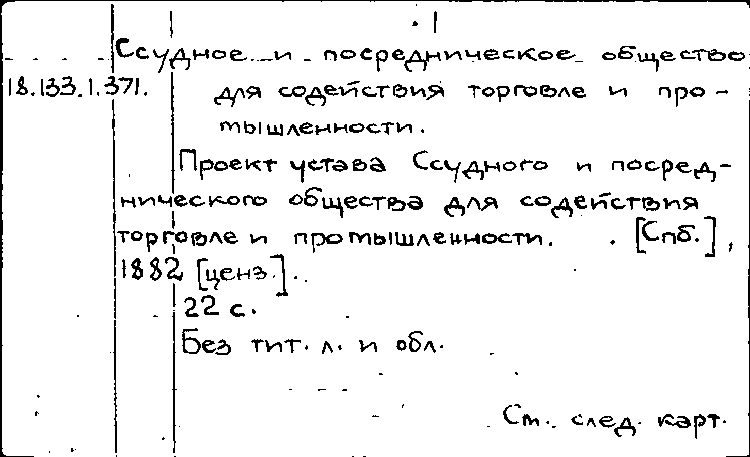 Ссудное и посредническое общество
18.133.1.371. для содействия торговле и про-
мышленности.
Проект устава Ссудного и посред-
нического общества для содействия
торговле и промышленности. [Спб.],
1882 [ценз.].
22 с.
Без тит. л. и обл.
См. след. карт.